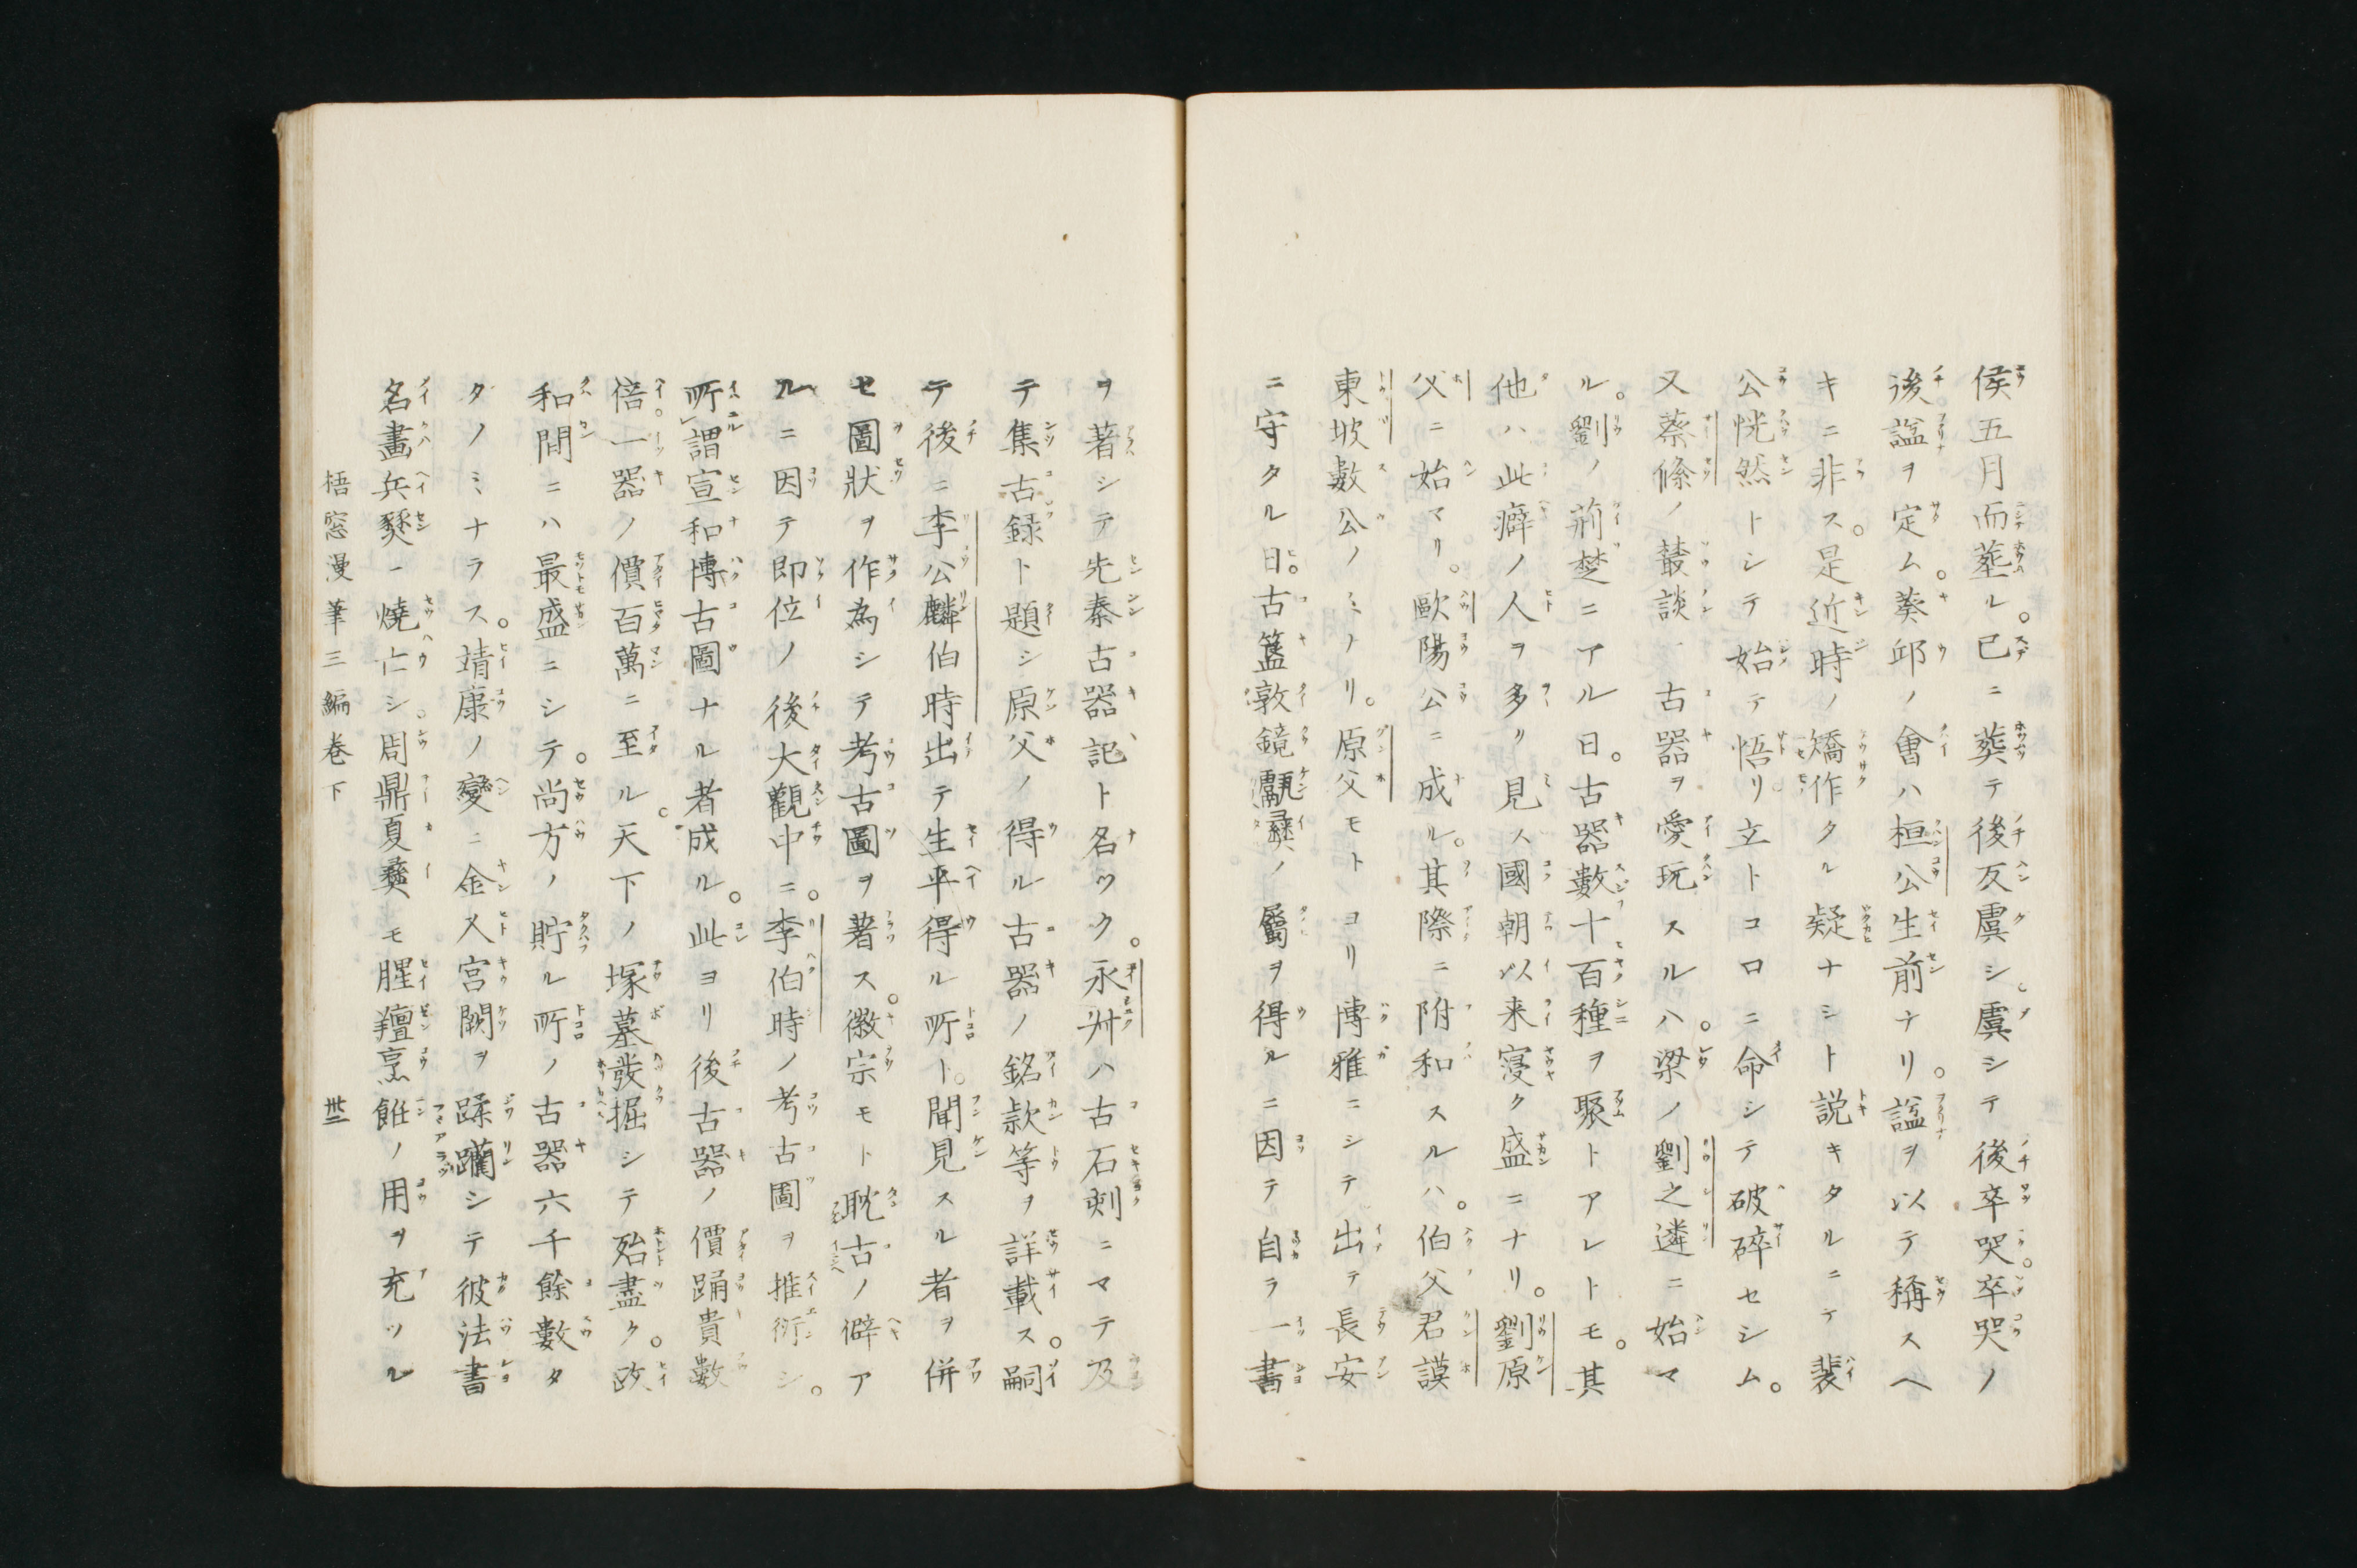 侯五月而葬ル。已ニ葬テ後反虞シ虞シテ後卒哭。卒哭ノ
後諡ヲ定ム。葵邱ノ會ハ桓公生前ナリ。諡ヲ以テ稱スヘ
キニ非ス。是近時ノ矯作タル疑ナシト説キタルニテ裴
公恍然トシテ始テ悟リ立トコロニ命シテ破碎セシム。
又蔡絛ノ叢談ニ古器ヲ愛玩スルハ。梁ノ劉之遴ニ始マ
ル。劉ノ荊楚ニアル日。古器數十百種ヲ聚トアレトモ。其
他ハ此癖ノ人ヲ多ク見ス國朝以来寖ク盛ニナリ。劉原
父ニ始マリ。歐陽公ニ成ル。其際ニ附和スルハ。伯父君謨
東坡數公ノミナリ。原父モトヨリ博雅ニシテ出テ長安
ニ守タル日。古簋敦鏡甗彝ノ屬ヲ得ルニ因テ自ラ一書
ヲ著シテ先秦古器記ト名ツク。永州ハ古石刻ニマテ及
テ集古録ト題シ原父ノ得ル古器ノ銘款等ヲ詳載ス。嗣
テ後ニ李公麟伯時出テ生平得ル所ト。聞見スル者ヲ併
セ圖狀ヲ作為シテ考古圖ヲ著ス。徽宗モト耽古ノ癖ア
ルニ因テ即位ノ後大觀中ニ。李伯時ノ考古圖ヲ推衍シ。
所謂宣和博古圖ナル者成ル。此ヨリ後古器ノ價踊貴數
倍。一器ノ價百萬ニ至ル。天下ノ塚墓發掘シテ殆盡ク。政
和間ニハ最盛ニシテ。尚方ノ貯ル所ノ古器六千餘數タ
タノミナラス。靖康ノ變ニ金人宮闕ヲ蹂躪シテ彼法書
名畫兵燹ニ燒亡シ。周鼎夏彝モ腥羶烹飪ノ用ヲ充ツル
梧窓漫筆三編巻下 卅二